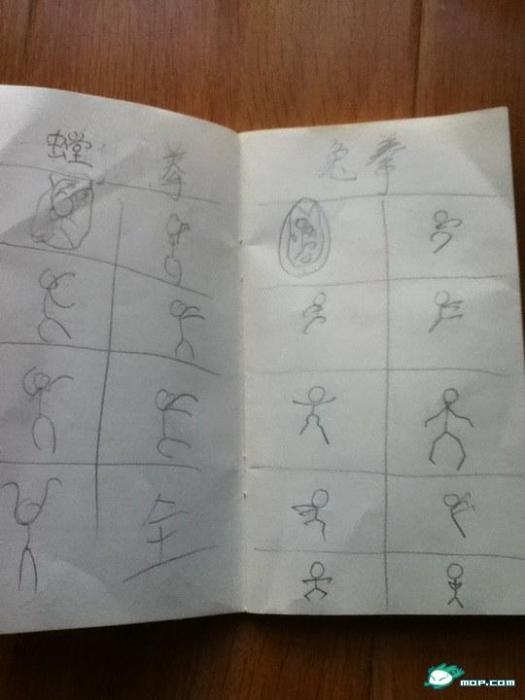 螳 拳
全
兔拳
mop.com